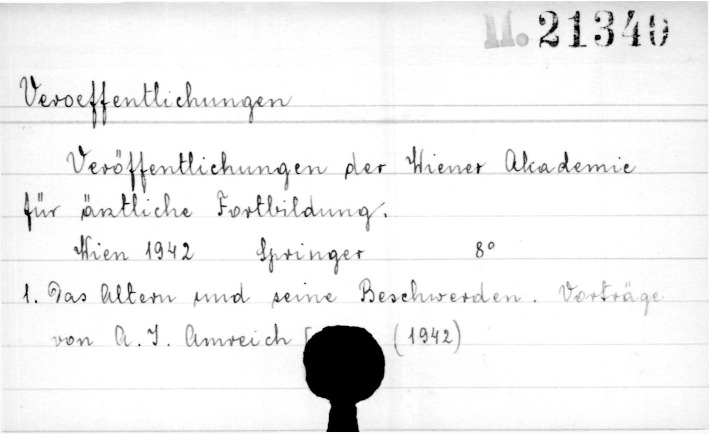 M. 21340
Veroeffentlichungen
Veröffentlichungen der Wiener Akademie
für ärztliche Fortbildung.
Wien 1942 Springer 8°
1. Das Altern und seine Beschwerden. Vorträge
von A. J. Amreich [ (1942)